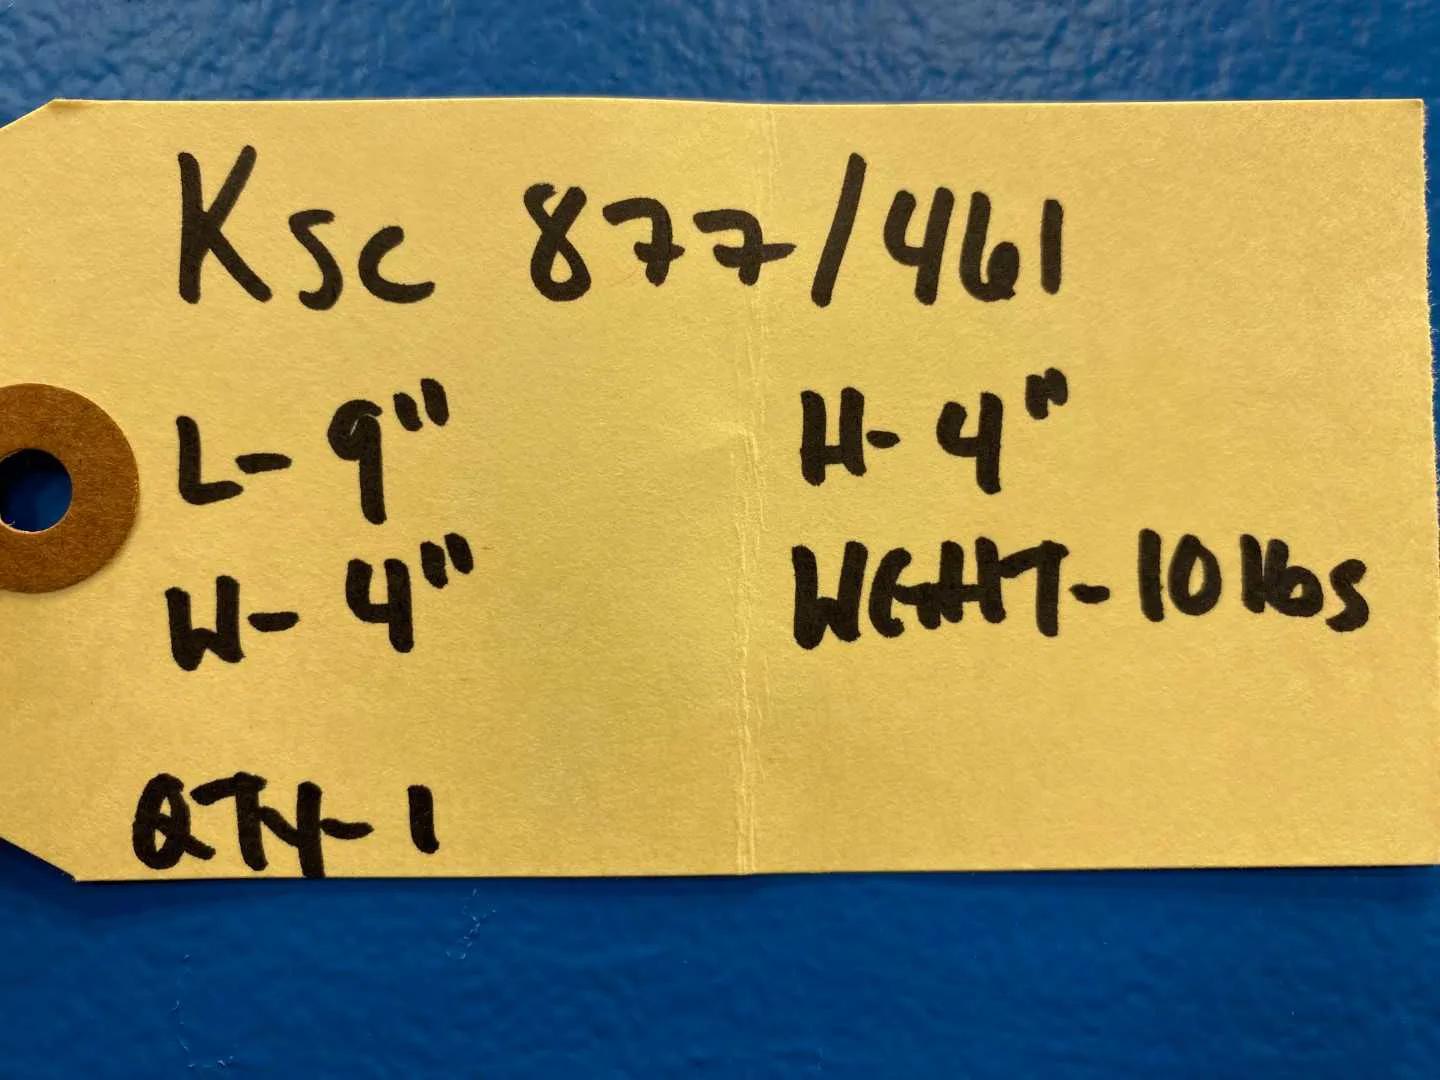 Ksc 877/461
L- 9" H- 4"
W- 4" WEGHT- 10 lbs
QTY- 1